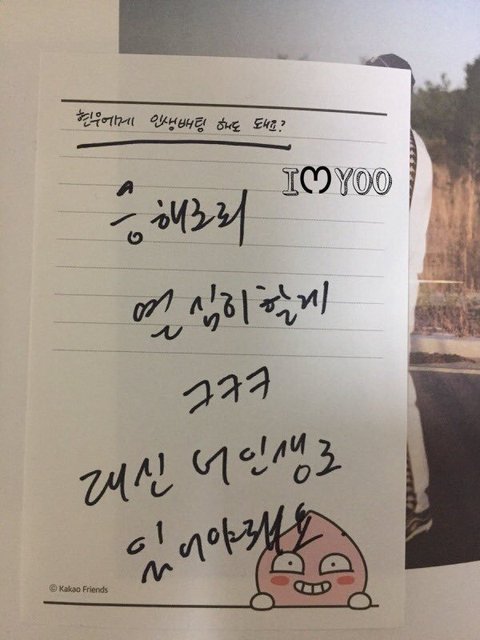 현우에게 인생배팅 해도 돼요?
IMYOO
응 해도되
열심히할게
ㅋㅋㅋ
대신 너 인생도
있어야돼요
© Kakao Friends